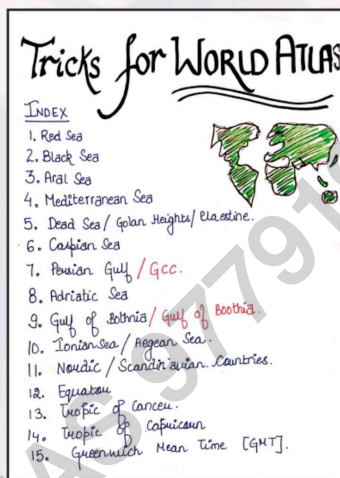 Tricks for WORLD ATLAS
INDEX
1. Red Sea
2. Black Sea
3. Aral Sea
4. Mediterranean Sea
5. Dead Sea/ Golan Heights/ Elaestine.
6. Caspian Sea
7. Persian Gulf/GCC.
8. Adriatic Sea
9. Gulf of Bothnia/Gulf of Boothia.
10. Ionian Sea/ Aegean Sea.
11. Nordic / Scandinavian Countries.
12. Equator
13. Tropic of Cancer.
14. Tropic of Capricorn
15. Greenwich Mean Time [GMT].
AS 97791